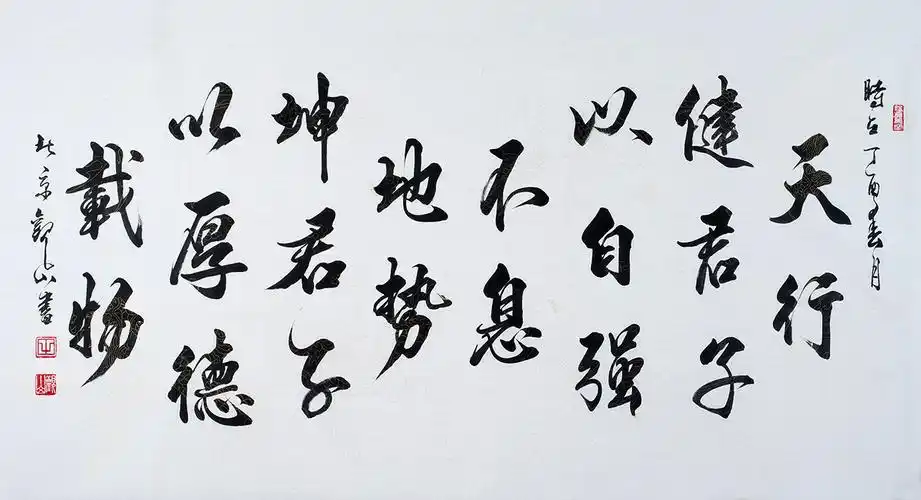 时在丁酉春月
天行
健君子
以自强
不息
地势
坤君子
以厚德
載物
北京观山書